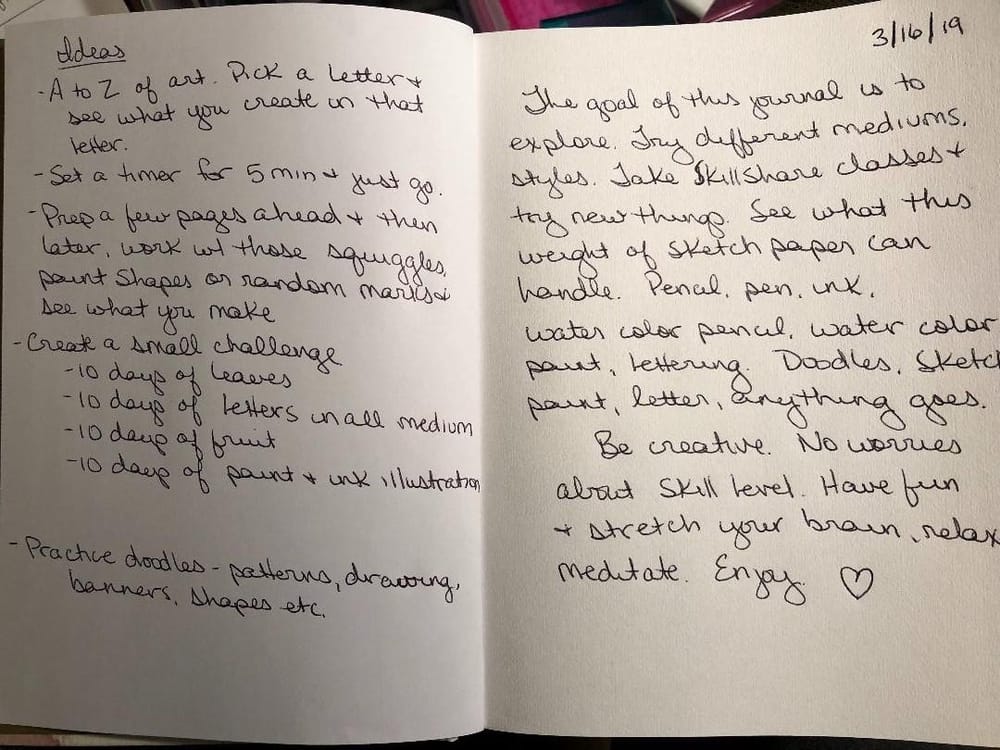 Ideas
- A to Z of art. Pick a letter +
see what you create in that
letter.
- Set a timer for 5 min + just go.
- Prep a few pages ahead + then
later, work w/ those squiggles,
paint shapes or random marks +
see what you make
- Create a small challenge
- 10 days of leaves
- 10 days of letters in all medium
- 10 days of fruit
- 10 days of paint + ink illustration
- Practice doodles - patterns, drawing,
banners, shapes etc.
3/16/19
The goal of this journal is to
explore. Try different mediums,
styles. Take Skillshare classes +
try new things. See what this
weight of sketch paper can
handle. Pencil, pen, ink,
water color pencil, water color
paint, lettering. Doodles, sketch
paint, letter, anything goes.
Be creative. No worries
about skill level. Have fun
+ stretch your brain, relax
meditate. Enjoy. ♡